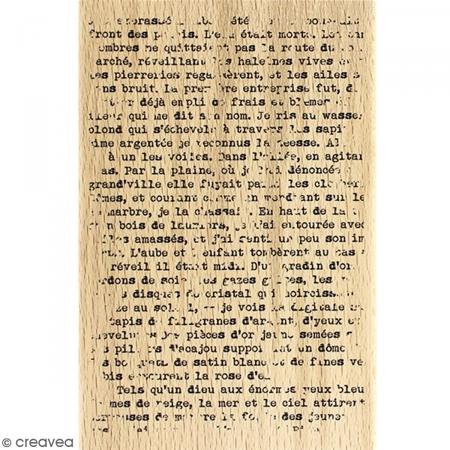 embrassé été
front des L'eau était morte. Les
ombres ne quittaient pas la route du
arché, réveillant les haleines vives
les pierreries regardèrent, et les ailes
ans bruit. La première entreprise fut, d
déjà empli de frais et blêmes
fleur qui me dit son nom. Je ris au wasser
blond qui s'échevela à travers les sapi
cime argentée je reconnus la déesse. Al
à un les voiles. Dans l'allée, en agitan
as. Par la plaine, où je l'ai dénoncée
grand'ville elle fuyait parmi les clochers
ômes, et courant comme un mendiant sur le
marbre, je la chassais. En haut de la
un bois de lauriers, je l'ai entourée avec
les amassés, et j'ai senti un peu son im
L'aube et l'enfant tombèrent au bas
réveil il était midi. D'un gradin d'or
rdons de soie, les gazes grises, les
disques de cristal qui noirciss
au soleil, je vois la digitale
tapis de filigranes d'argent, d'yeux
evelures. Des pièces d'or jaune semées
piliers d'acajou supportant un dôm
bouquets de satin blanc et de fines ve
bis entourent la rose d'e
Tels qu'un dieu aux énormes yeux bleu
mes de neige, la mer et le ciel attirent
marbre la des jeunes
© creavea